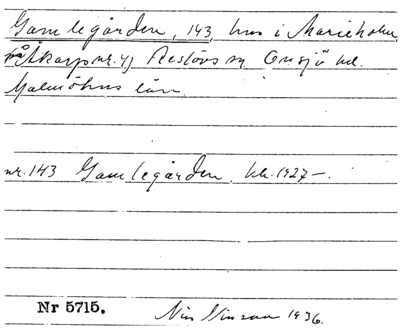 Gamlegården, 143, hus i Marieholm,
på Åkarp nr. 4, Reslövs sn Onsjö hd.
Malmöhus län.
nr. 143 Gamlegården, bb. 1927 —.
Nr 5715.
1936.